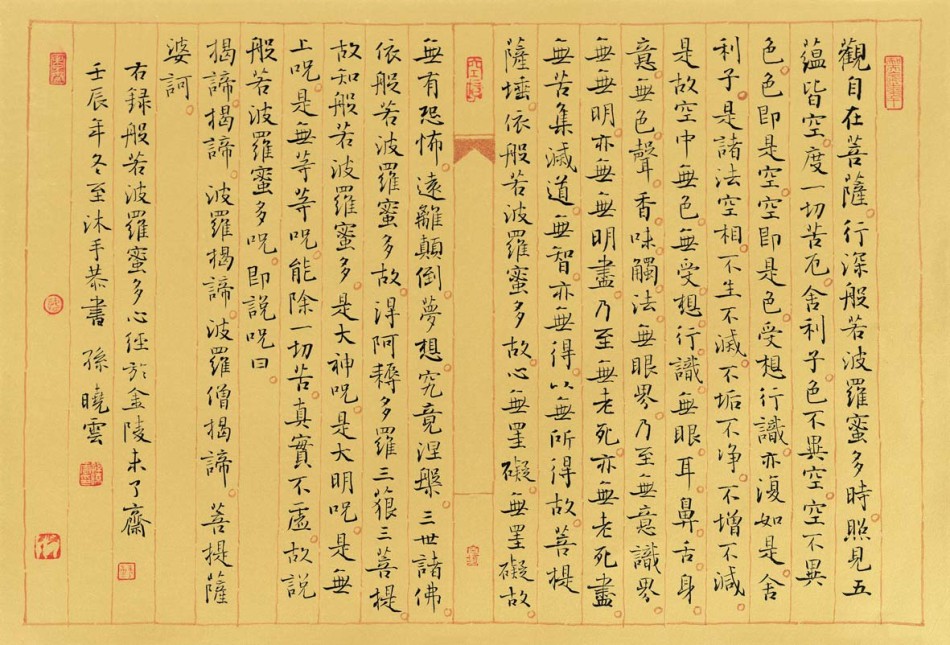 觀自在菩薩行深般若波羅蜜多時照見五
蘊皆空度一切苦厄舍利子色不異空空不異
色色即是空空即是色受想行識亦復如是舍
利子是諸法空相不生不滅不垢不净不增不減
是故空中無色無受想行識無眼耳鼻舌身
意無色聲香味觸法無眼界乃至無意識界
無無明亦無無明盡乃至無老死亦無老死盡
無苦集滅道無智亦無得以無所得故菩提
薩埵依般若波羅蜜多故心無罣礙無罣礙故
無有恐怖遠離顛倒夢想究竟涅槃三世諸佛
依般若波羅蜜多故得阿耨多羅三藐三菩提
故知般若波羅蜜多是大神呪是大明呪是無
上呪是無等等呪能除一切苦真實不虛故說
般若波羅蜜多呪即說呪曰
揭諦揭諦波羅揭諦波羅僧揭諦菩提薩
婆訶
右録般若波羅蜜多心經於金陵未了齋
壬辰年冬至沐手恭書 孫曉雲